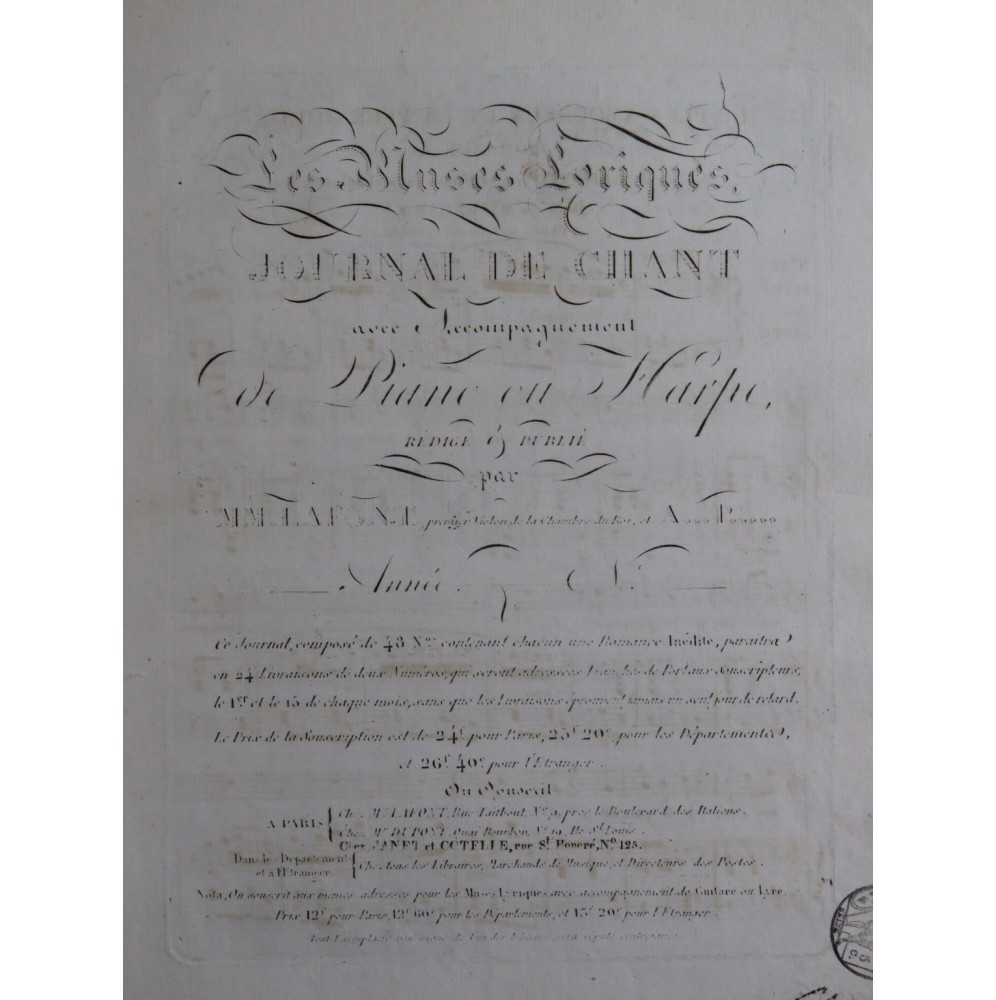 Les Muses Lyriques,
JOURNAL DE CHANT
avec Accompagnement
de Piano ou Harpe,
RÉDIGÉ & PUBLIÉ
par
M.M. LAFONT, premier Violon de la Chambre du Roi, et A.... P......
Année. N.º
Ce Journal, composé de 48 N.os contenant chacun une Romance Inédite, paraîtra
en 24 Livraisons de deux Numéros, qui seront adressées franches de Port aux Souscripteurs,
le 1.er et le 15 de chaque mois, sans que les Livraisons éprouvent jamais un seul jour de retard.
Le Prix de la Souscription est de 24.f pour Paris, 25.f 20.c pour les Départements,
et 26.f 40.c pour l'Etranger.
On Souscrit
A PARIS
Chez M.r LAFONT, Rue Taitbout, N.º 9, près le Boulevard des Italiens.
Chez M.r DUPONT, Quai Bourbon, N.º 19, Ile S.t Louis.
Chez JANET et COTELLE, rue S.t Honoré, N.º 125.
Dans les Départements
et à l'Etranger
Chez tous les Libraires, Marchands de Musique, et Directeurs des Postes.
Nota, On souscrit aux mêmes adresses pour les Muses Lyriques avec accompagnement de Guitare ou Lyre.
Prix 12.f pour Paris, 12.f 60.c pour les Départements, et 13.f 20.c pour l'Etranger.
Tout Exemplaire non signé de l'un des Editeurs sera réputé contrefait.
5 c.